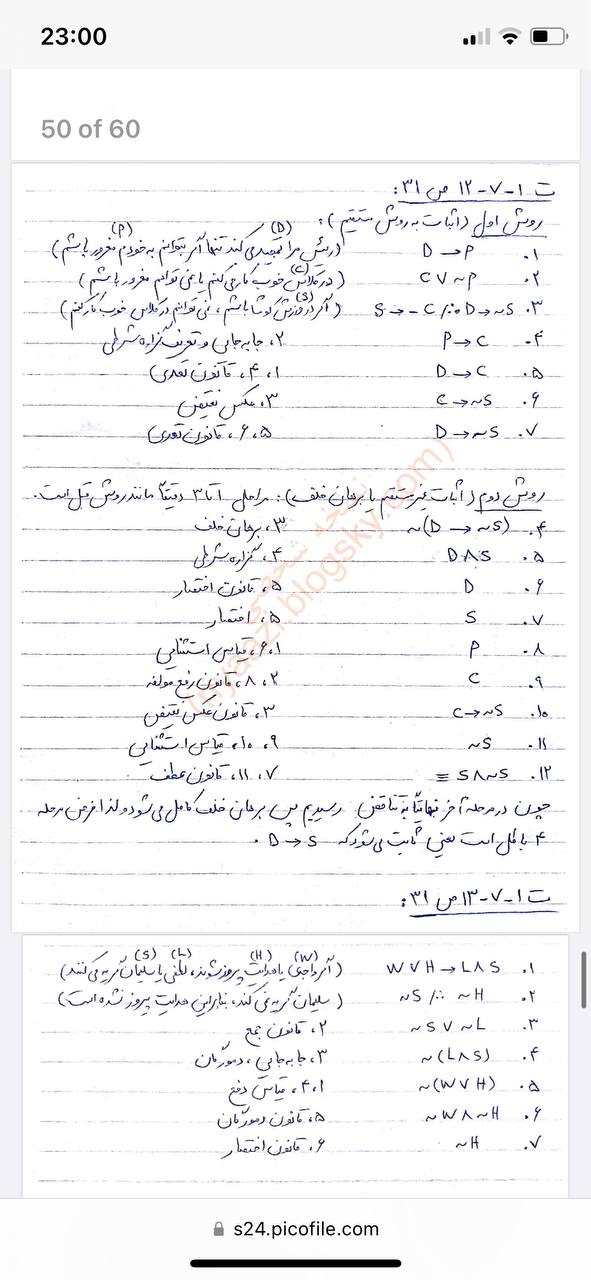 23:00
50 of 60
ت ۱-۷-۱۲ ص ۳۱:
روش اول (اثبات به روش مستقیم):
(P) (D)
۱. D→P (رئیس مرا تمجید می کند تنها اگر بتوانم به خودم مغرور باشم)
(C)
۲. C∨~P (در کلاس خوب کار می کنم یا نمی توانم مغرور باشم)
(S)
۳. S→~C /∴ D→~S (اگر در ورزش کوشا باشم، نمی توانم در کلاس خوب کار کنم)
۴. P→C ۲، جابه جایی و تعریف گزاره شرطی
۵. D→C ۱، ۴، قانون تعدی
۶. C→~S ۳، عکس نقیض
۷. D→~S ۵، ۶، قانون تعدی
روش دوم (اثبات غیر مستقیم یا برهان خلف): مراحل ۱ تا ۳ دقیقاً مانند روش قبل است.
۴. ~(D→~S) ۳، برهان خلف
۵. D∧S ۴، گزاره شرطی
۶. D ۵، قانون اختصار
۷. S ۵، اختصار
۸. P ۱، ۶، قیاس استثنایی
۹. C ۲، ۸، قانون رفع مولفه
۱۰. C→~S ۳، قانون عکس نقیض
۱۱. ~S ۹، ۱۰، قیاس استثنایی
۱۲. S∧~S ≡ ۷، ۱۱، قانون عطف
چون در مرحله آخر نهایتاً به تناقض رسیدیم پس برهان خلف کامل می شود و لذا فرض مرحله
۴ باطل است یعنی ثابت می شود که D→S .
ت ۱-۷-۱۳ ص ۳۱:
(S) (L) (H) (W)
۱. W∨H→L∧S (اگر واجدی یا هدایت پیروز شوند، لطفی یا سلیمان گریه می کنند)
۲. ~S /∴ ~H (سلیمان گریه نمی کند، بنابراین هدایت پیروز نشده است)
۳. ~S∨~L ۲، قانون جمع
۴. ~(L∧S) ۳، جابه جایی، دمورگان
۵. ~(W∨H) ۱، ۴، قیاس دفع
۶. ~W∧~H ۵، قانون دمورگان
۷. ~H ۶، قانون اختصار
s24.picofile.com